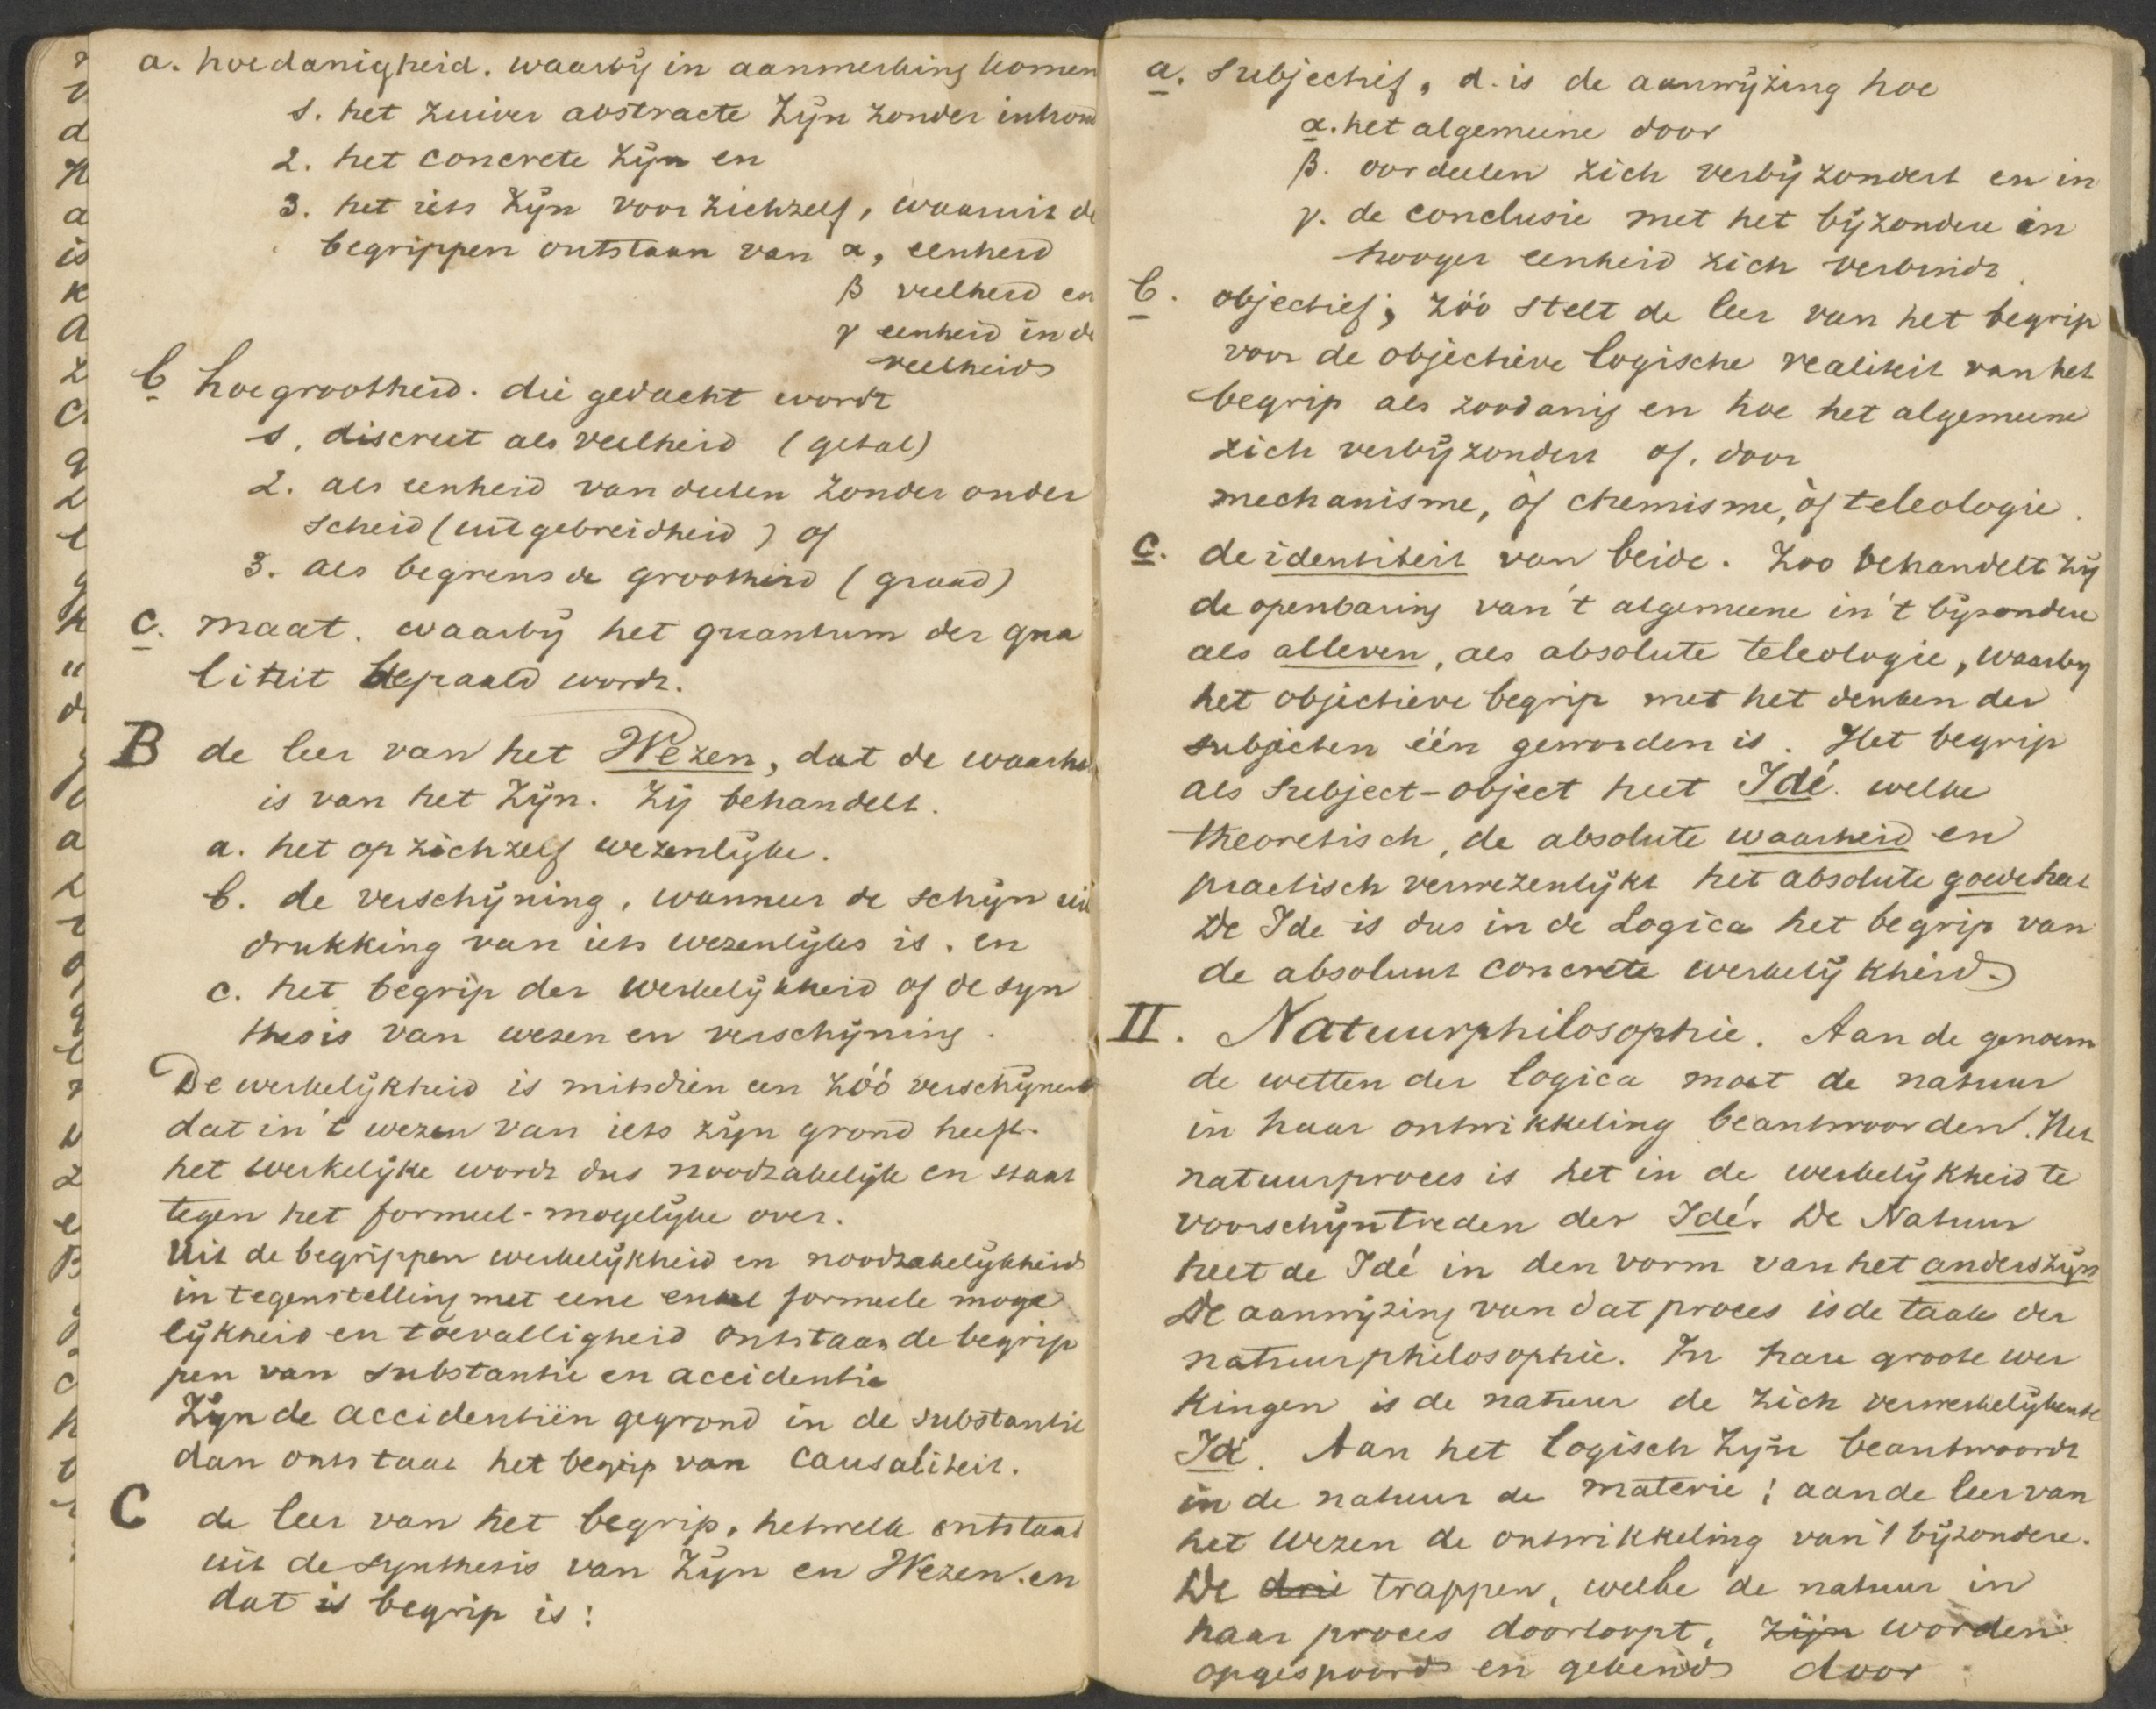 a. hoedanigheid. waarby in aanmerking komen
1. het zuiver abstracte Zyn zonder inhoud
2. het concrete Zyn en
3. het iets Zyn voor zichzelf, waaruit de
begrippen ontstaan van α, eenheid
β veelheid en
γ eenheid in de
veelheid
b hoegrootheid. die gedacht wordt
1. discreet als veelheid (getal)
2. als eenheid van deelen zonder onder
scheid (uitgebreidheid) of
3. als begrensde grootheid (graad)
c. maat. waarby het quantum der qua
liteit bepaald wordt.
B de leer van het Wezen, dat de waarhe
is van het Zyn. Zij behandelt.
a. het op zichzelf wezenlyke.
b. de verschyning, wanneer de schyn uit
drukking van iets wezenlyks is. en
c. het begrip der werkelykheid of de syn
thesis van wezen en verschyning.
De werkelykheid is mitsdien een zóó verschynend
dat in 't wezen van iets zyn grond heeft.
het werkelyke wordt dus noodzakelyk en staat
tegen het formeel-mogelyke over.
Uit de begrippen werkelykheid en noodzakelykheid
in tegenstelling met eene enkel formeele moge
lykheid en toevalligheid ontstaan de begrip
pen van substantie en accidentie
Zyn de accidentiën gegrond in de substantie
dan ontstaat het begrip van causaliteit.
C de leer van het begrip, hetwelk ontstaat
uit de synthesis van Zyn en Wezen. en
dat is begrip is:
a. subjectief, d. is de aanwyzing hoe
α. het algemeene door
β. oordeelen zich verbyzondert en in
γ. de conclusie met het byzondere in
hooger eenheid zich verbindt.
b. objectief; zóó stelt de leer van het begrip
voor de objectieve logische realiteit van het
begrip als zoodanig en hoe het algemeene
zich verbyzondert of. door
mechanisme, òf chemisme, òf teleologie.
c. de identiteit van beide. Zoo behandelt zy
de openbaring van 't algemeene in 't byzondere
als alleven, als absolute teleologie, waarby
het objectieve begrip met het denken der
subjecten één geworden is. Het begrip
als subject-object heet Idé. welke
theoretisch, de absolute waarheid en
practisch verwezenlykt het absolute goede hat
De Ide is dus in de Logica het begrip van
de absoluut concrete werkelykheid.
II. Natuurphilosophie. Aan de genoem
de wetten der logica moet de natuur
in haar ontwikkeling beantwoorden. Het
natuurproces is het in de werkelykheid te
voorschyntreden der Idé. De Natuur
heet de Idé in den vorm van het anderszyn
De aanwyzing van dat proces is de taak der
natuurphilosophie. In hare groote wer
kingen is de natuur de zich verwerkelykende
Idé. Aan het logisch Zyn beantwoordt
in de natuur de materie; aan de leer van
het wezen de ontwikkeling van 't byzondere.
De drie trappen, welke de natuur in
haar proces doorloopt, zijn worden
opgespoord en gekend door